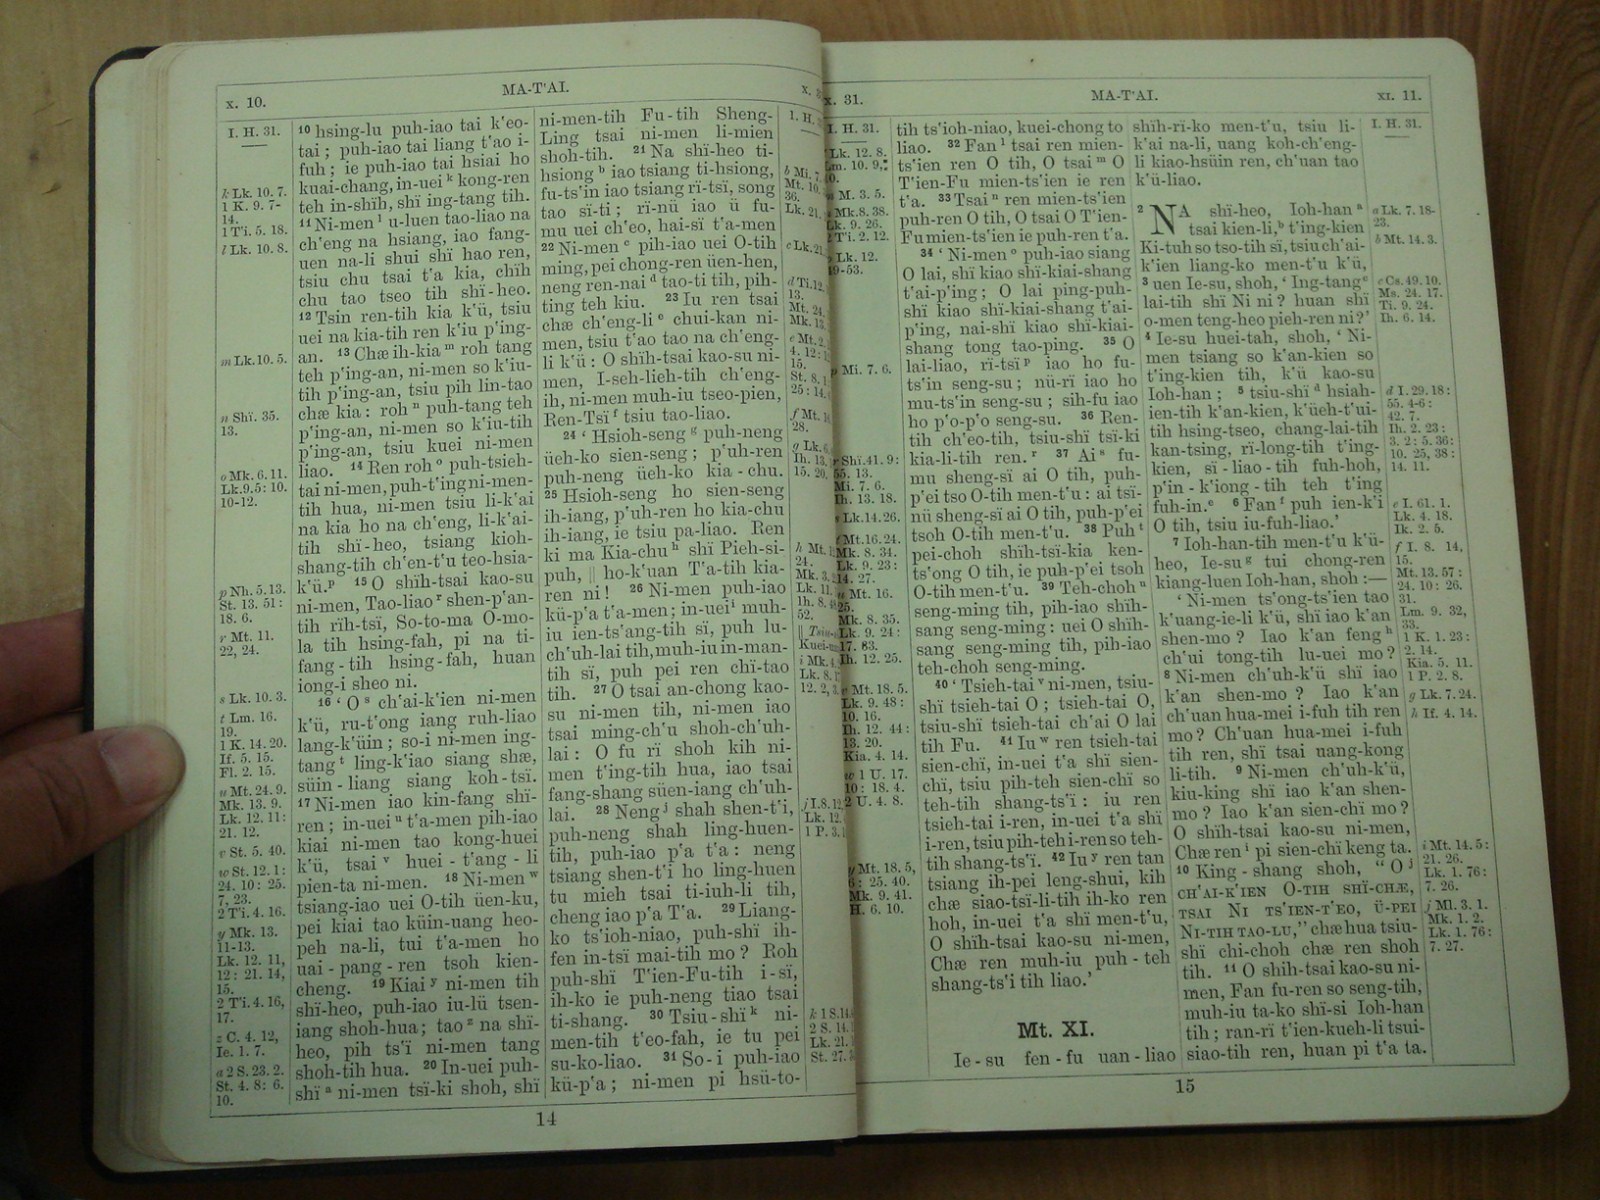 x. 10.
MA-T'AI.
I. H. 31.
k Lk. 10. 7.
1 K. 9. 7-
14.
1 T'i. 5. 18.
l Lk. 10. 8.
m Lk. 10. 5.
n Shï. 35.
13.
o Mk. 6. 11.
Lk. 9. 5: 10.
10-12.
p Nh. 5. 13.
St. 13. 51:
18. 6.
r Mt. 11.
22, 24.
s Lk. 10. 3.
t Lm. 16.
19.
1 K. 14. 20.
If. 5. 15.
Fl. 2. 15.
u Mt. 24. 9.
Mk. 13. 9.
Lk. 12. 11:
21. 12.
v St. 5. 40.
w St. 12. 1:
24. 10: 25.
7, 23.
2 T'i. 4. 16.
y Mk. 13.
11-13.
Lk. 12. 11,
12: 21. 14,
15.
2 T'i. 4. 16,
17.
z C. 4. 12,
Ie. 1. 7.
a 2 S. 23. 2.
St. 4. 8: 6.
10.
10 hsing-lu puh-iao tai k'eo-
tai; puh-iao tai liang t'ao i-
fuh; ie puh-iao tai hsiai ho
kuai-chang, in-uei k kong-ren
teh in-shïh, shï ing-tang tih.
11 Ni-men l u-luen tao-liao na
ch'eng na hsiang, iao fang-
uen na-li shui shï hao ren,
tsiu chu tsai t'a kia, chïh
chu tao tseo tih shï-heo.
12 Tsin ren-tih kia k'ü, tsiu
uei na kia-tih ren k'iu p'ing-
an. 13 Chæ ih-kia m roh tang
teh p'ing-an, ni-men so k'iu-
tih p'ing-an, tsiu pih lin-tao
chæ kia: roh n puh-tang teh
p'ing-an, ni-men so k'iu-tih
p'ing-an, tsiu kuei ni-men
liao. 14 Ren roh o puh-tsieh-
tai ni-men, puh-t'ing ni-men-
tih hua, ni-men tsiu li-k'ai
na kia ho na ch'eng, li-k'ai-
tih shï-heo, tsiang kioh-
shang-tih ch'en-t'u teo-hsia-
k'ü. p 15 O shïh-tsai kao-su
ni-men, Tao-liao r shen-p'an-
tih rïh-tsï, So-to-ma O-mo-
la tih hsing-fah, pi na ti-
fang-tih hsing-fah, huan
iong-i sheo ni.
16 ' O s ch'ai-k'ien ni-men
k'ü, ru-t'ong iang ruh-liao
lang-k'üin; so-i ni-men ing-
tang t ling-k'iao siang shæ,
süin-liang siang koh-tsï.
17 Ni-men iao kin-fang shï-
ren; in-uei u t'a-men pih-iao
kiai ni-men tao kong-huei
k'ü, tsai v huei-t'ang-li
pien-ta ni-men. 18 Ni-men w
tsiang-iao uei O-tih üen-ku,
pei kiai tao küin-uang heo-
peh na-li, tui t'a-men ho
uai-pang-ren tsoh kien-
cheng. 19 Kiai y ni-men tih
shï-heo, puh-iao iu-lü tsen-
iang shoh-hua; tao z na shï-
heo, pih ts'ï ni-men tang
shoh-tih hua. 20 In-uei puh-
shï a ni-men tsï-ki shoh, shï
ni-men-tih Fu-tih Sheng-
Ling tsai ni-men li-mien
shoh-tih. 21 Na shï-heo ti-
hsiong b iao tsiang ti-hsiong,
fu-ts'in iao tsiang rï-tsï, song
tao sï-ti; rï-nü iao ü fu-
mu uei ch'eo, hai-sï t'a-men
22 Ni-men c pih-iao uei O-tih
ming, pei chong-ren üen-hen,
neng ren-nai d tao-ti tih, pih-
ting teh kiu. 23 Iu ren tsai
chæ ch'eng-li e chui-kan ni-
men, tsiu t'ao tao na ch'eng-
li k'ü: O shïh-tsai kao-su ni-
men, I-seh-lieh-tih ch'eng-
ih, ni-men muh-iu tseo-pien,
Ren-Tsï f tsiu tao-liao.
24 ' Hsioh-seng g puh-neng
üeh-ko sien-seng; p'uh-ren
puh-neng üeh-ko kia-chu.
25 Hsioh-seng ho sien-seng
ih-iang, p'uh-ren ho kia-chu
ih-iang, ie tsiu pa-liao. Ren
ki ma Kia-chu h shï Pieh-si-
puh, || ho-k'uan T'a-tih kia-
ren ni! 26 Ni-men puh-iao
kü-p'a t'a-men; in-uei i muh-
iu ien-ts'ang-tih sï, puh lu-
ch'uh-lai tih, muh-iu in-man-
tih sï, puh pei ren chï-tao
tih. 27 O tsai an-chong kao-
su ni-men tih, ni-men iao
tsai ming-ch'u shoh-ch'uh-
lai: O fu rï shoh kih ni-
men t'ing-tih hua, iao tsai
fang-shang süen-iang ch'uh-
lai. 28 Neng j shah shen-t'i,
puh-neng shah ling-huen-
tih, puh-iao p'a t'a: neng
tsiang shen-t'i ho ling-huen
tu mieh tsai ti-iuh-li tih,
cheng iao p'a T'a. 29 Liang-
ko ts'ioh-niao, puh-shï ih-
fen in-tsï mai-tih mo? Roh
puh-shï T'ien-Fu-tih i-sï,
ih-ko ie puh-neng tiao tsai
ti-shang. 30 Tsiu-shï k ni-
men-tih t'eo-fah, ie tu pei
su-ko-liao. 31 So-i puh-iao
kü-p'a; ni-men pi hsü-to-
14
x. 31.
MA-T'AI.
XI. 11.
I. H. 31.
Lk. 12. 8.
Lm. 10. 9,
M. 3. 5.
Mk. 8. 38.
Lk. 9. 26.
2 T'i. 2. 12.
Lk. 12.
49-53.
p Mi. 7. 6.
Shï. 41. 9:
55. 13.
Mi. 7. 6.
Ih. 13. 18.
Lk. 14. 26.
Mt. 16. 24.
Mk. 8. 34.
Lk. 9. 23:
14. 27.
Mt. 16.
25.
Mk. 8. 35.
Lk. 9. 24:
17. 33.
Ih. 12. 25.
Mt. 18. 5.
Lk. 9. 48:
10. 16.
Ih. 12. 44:
13. 20.
Kia. 4. 14.
w 1 U. 17.
10: 18. 4.
2 U. 4. 8.
y Mt. 18. 5,
6: 25. 40.
Mk. 9. 41.
H. 6. 10.
tih ts'ioh-niao, kuei-chong to
liao. 32 Fan l tsai ren mien-
ts'ien ren O tih, O tsai m O
T'ien-Fu mien-ts'ien ie ren
t'a. 33 Tsai n ren mien-ts'ien
puh-ren O tih, O tsai O T'ien-
Fu mien-ts'ien ie puh-ren t'a.
34 ' Ni-men o puh-iao siang
O lai, shï kiao shï-kiai-shang
t'ai-p'ing; O lai ping-puh-
shï kiao shï-kiai-shang t'ai-
p'ing, nai-shï kiao shï-kiai-
shang tong tao-ping. 35 O
lai-liao, rï-tsï p iao ho fu-
ts'in seng-su; nü-rï iao ho
mu-ts'in seng-su; sih-fu iao
ho p'o-p'o seng-su. 36 Ren-
tih ch'eo-tih, tsiu-shï tsï-ki
kia-li-tih ren. r 37 Ai s fu-
mu sheng-sï ai O tih, puh-
p'ei tso O-tih men-t'u: ai tsï-
nü sheng-sï ai O tih, puh-p'ei
tsoh O-tih men-t'u. 38 Puh t
pei-choh shïh-tsï-kia ken-
ts'ong O tih, ie puh-p'ei tsoh
O-tih men-t'u. 39 Teh-choh u
seng-ming tih, pih-iao shïh-
sang seng-ming: uei O shïh-
sang seng-ming tih, pih-iao
teh-choh seng-ming.
40 ' Tsieh-tai v ni-men, tsiu-
shï tsieh-tai O; tsieh-tai O,
tsiu-shï tsieh-tai ch'ai O lai
tih Fu. 41 Iu w ren tsieh-tai
sien-chï, in-uei t'a shï sien-
chï, tsiu pih-teh sien-chï so
teh-tih shang-ts'ï: iu ren
tsieh-tai i-ren, in-uei t'a shï
i-ren, tsiu pih-teh i-ren so teh-
tih shang-ts'ï. 42 Iu y ren tan
tsiang ih-pei leng-shui, kih
chæ siao-tsï-li-tih ih-ko ren
hoh, in-uei t'a shï men-t'u,
O shïh-tsai kao-su ni-men,
Chæ ren muh-iu puh-teh
shang-ts'ï tih liao.'
Mt. XI.
Ie-su fen-fu uan-liao
shïh-rï-ko men-t'u, tsiu li-
k'ai na-li, uang koh-ch'eng-
li kiao-hsüin ren, ch'uan tao
k'ü-liao.
2 NA shï-heo, Ioh-han a
tsai kien-li, b t'ing-kien
Ki-tuh so tso-tih sï, tsiu ch'ai-
k'ien liang-ko men-t'u k'ü,
3 uen Ie-su, shoh, ' Ing-tang c
lai-tih shï Ni ni? huan shï
o-men teng-heo pieh-ren ni?'
4 Ie-su huei-tah, shoh, ' Ni-
men tsiang so k'an-kien so
t'ing-kien tih, k'ü kao-su
Ioh-han; 5 tsiu-shï d hsiah-
ien-tih k'an-kien, k'üeh-t'ui-
tih hsing-tseo, chang-lai-tih
kan-tsing, rï-long-tih t'ing-
kien, sï-liao-tih fuh-hoh,
p'in-k'iong-tih teh t'ing
fuh-in. e 6 Fan f puh ien-k'i
O tih, tsiu iu-fuh-liao.'
7 Ioh-han-tih men-t'u k'ü-
heo, Ie-su g tui chong-ren
kiang-luen Ioh-han, shoh:—
' Ni-men ts'ong-ts'ien tao
k'uang-ie-li k'ü, shï iao k'an
shen-mo? Iao k'an feng h
ch'ui tong-tih lu-uei mo?
8 Ni-men ch'uh-k'ü shï iao
k'an shen-mo? Iao k'an
ch'uan hua-mei i-fuh tih ren
mo? Ch'uan hua-mei i-fuh
tih ren, shï tsai uang-kong
li-tih. 9 Ni-men ch'uh-k'ü,
kiu-king shï iao k'an shen-
mo? Iao k'an sien-chï mo?
O shïh-tsai kao-su ni-men,
Chæ ren i pi sien-chï keng ta.
10 King-shang shoh, " O j
CH'AI-K'IEN O-TIH SHÏ-CHÆ,
TSAI NI TS'IEN-T'EO, Ü-PEI
NI-TIH TAO-LU," chæ hua tsiu-
shï chi-choh chæ ren shoh
tih. 11 O shih-tsai kao-su ni-
men, Fan fu-ren so seng-tih,
muh-iu ta-ko shï-si Ioh-han
tih; ran-rï t'ien-kueh-li tsui-
siao-tih ren, huan pi t'a ta.
I. H. 31.
a Lk. 7. 18-
23.
b Mt. 14. 3.
c Cs. 49. 10.
Ms. 24. 17.
Ti. 9. 24.
Ih. 6. 14.
d I. 29. 18:
55. 4-6:
42. 7.
Ih. 2. 23:
3. 2: 5. 36:
10. 25, 38:
14. 11.
e I. 61. 1.
Lk. 4. 18.
Ik. 2. 5.
f I. 8. 14,
15.
Mt. 13. 57:
24. 10: 26.
31.
Lm. 9. 32,
33.
1 K. 1. 23:
2. 14.
Kia. 5. 11.
1 P. 2. 8.
g Lk. 7. 24.
h If. 4. 14.
i Mt. 14. 5:
21. 26.
Lk. 1. 76:
7. 26.
j Ml. 3. 1.
Mk. 1. 2.
Lk. 1. 76:
7. 27.
15